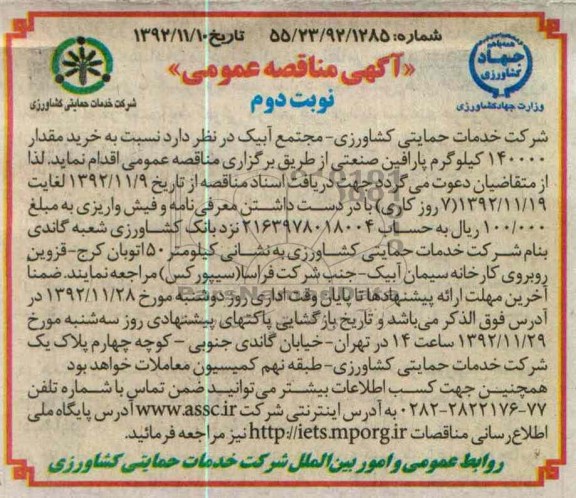 شماره: ۵۵/۲۳/۹۲/۱۲۸۵ تاریخ ۱۳۹۲/۱۱/۱۰
«آگهی مناقصه عمومی»
نوبت دوم
همه با هم
جهاد
کشاورزی
وزارت جهاد کشاورزی
شرکت خدمات حمایتی کشاورزی
شرکت خدمات حمایتی کشاورزی- مجتمع آبیک در نظر دارد نسبت به خرید مقدار
۱۴۰۰۰۰ کیلوگرم پارافین صنعتی از طریق برگزاری مناقصه عمومی اقدام نماید. لذا
از متقاضیان دعوت می گردد جهت دریافت اسناد مناقصه از تاریخ ۱۳۹۲/۱۱/۹ لغایت
۱۳۹۲/۱۱/۱۹(۷ روز کاری) با در دست داشتن معرفی نامه و فیش واریزی به مبلغ
۱۰۰/۰۰۰ ریال به حساب ۲۱۶۳۹۷۸۰۱۸۰۰۴ نزد بانک کشاورزی شعبه گاندی
بنام شرکت خدمات حمایتی کشاورزی به نشانی کیلومتر ۵۰ اتوبان کرج- قزوین
روبروی کارخانه سیمان آبیک- جنب شرکت فراسا(سیپورکس) مراجعه نمایند. ضمناً
آخرین مهلت ارائه پیشنهادها تا پایان وقت اداری روز دوشنبه مورخ ۱۳۹۲/۱۱/۲۸ در
آدرس فوق الذکر می باشد و تاریخ بازگشایی پاکتهای پیشنهادی روز سه شنبه مورخ
۱۳۹۲/۱۱/۲۹ ساعت ۱۴ در تهران- خیابان گاندی جنوبی - کوچه چهارم پلاک یک
شرکت خدمات حمایتی کشاورزی- طبقه نهم کمیسیون معاملات خواهد بود
همچنین جهت کسب اطلاعات بیشتر می توانید ضمن تماس با شماره تلفن
۰۲۸۲-۲۸۲۲۱۷۶-۷۷ به آدرس اینترنتی شرکت www.assc.ir آدرس پایگاه ملی
اطلاع رسانی مناقصات http://iets.mporg.ir نیز مراجعه فرمائید.
روابط عمومی و امور بین الملل شرکت خدمات حمایتی کشاورزی